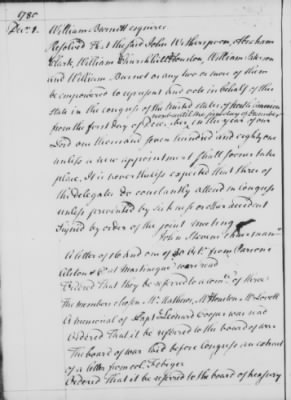 1780
Decr. 1.
William Barnett esquires
Resolved That the said John Witherspoon, Abraham
Clark, William Churchill Houston, William Paterson
and William Burnet or any two or more of them
be empowered to represent and vote in behalf of this
state in the congress of the United states of North America
next until the first day of December
from the first day of December in the year of our
Lord one thousand seven hundred and eighty one
unless a new appointment shall sooner take
place. It is nevertheless expected that three of
the delegates do constantly attend in Congress
unless prevented by sickness or other accident
Signed by order of the joint meeting
John Stevens chairman
A letter of 16 and one of 30 Octr. from Parsons
Alston & Co at Martinique were read
Ordered That they be referred to a comee. of three
The members chosen Mr Mathews, Mr Houston, Mr Lovell
A memorial of Capt Leonard Cooper was read
Ordered That it be referred to the board of war
The board of war laid before Congress an extract
of a letter from col. Febiger
Ordered That it be referred to the board of treasury